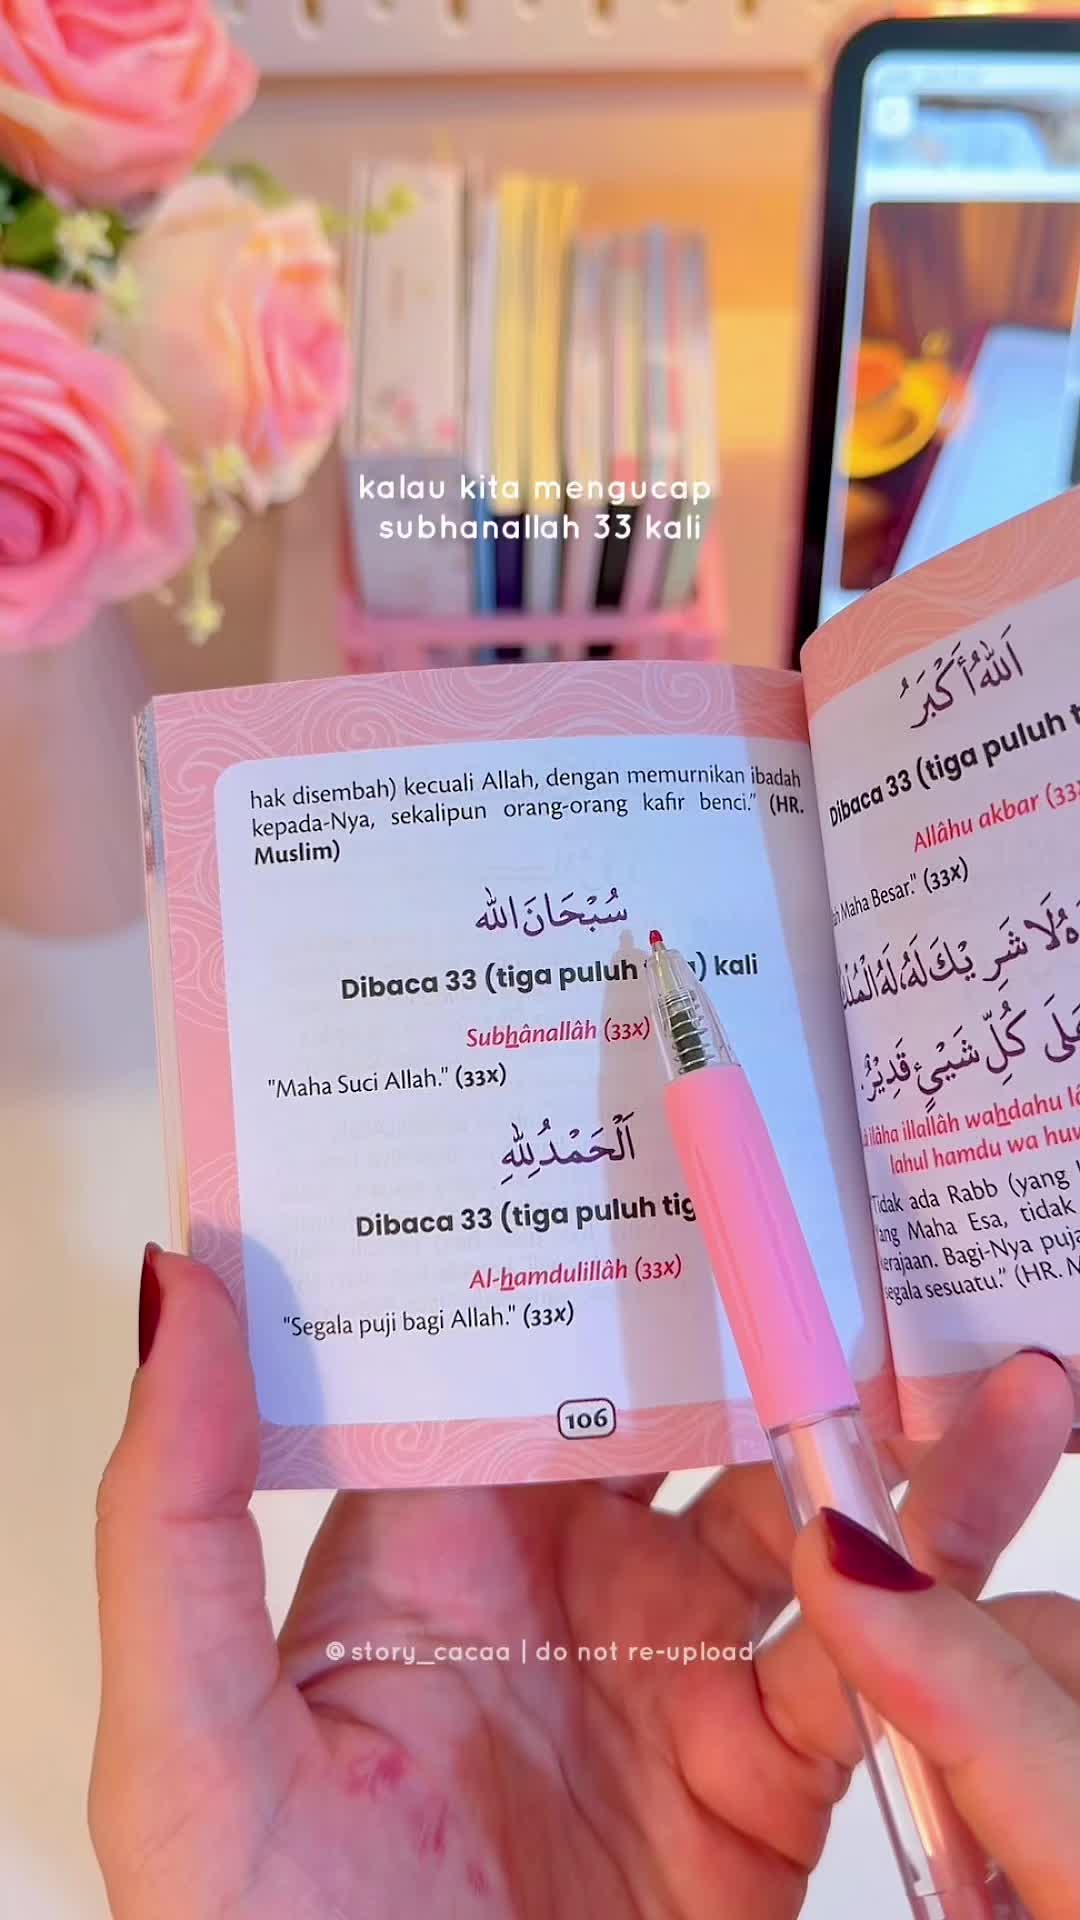 kalau kita mengucap
subhanallah 33 kali
hak disembah) kecuali Allah, dengan memurnikan ibadah
kepada-Nya, sekalipun orang-orang kafir benci." (HR.
Muslim)
سُبْحَانَ اللّٰه
Dibaca 33 (tiga puluh) kali
Subhânallâh (33x)
"Maha Suci Allah." (33x)
اَلْحَمْدُ لِلّٰهِ
Dibaca 33 (tiga puluh tig
Al-hamdulillâh (33x)
"Segala puji bagi Allah." (33x)
106
اَللّٰهُ أَكْبَرُ
Dibaca 33 (tiga puluh t
Allâhu akbar (33
Maha Besar." (33x)
لَا شَرِيْكَ لَهُ، لَهُ الْمُلْكُ
عَلَى كُلِّ شَيْئٍ قَدِيْرٌ.
ilâha illallâh wahdahu lâ
lahul hamdu wa huw
Tidak ada Rabb (yang
ang Maha Esa, tidak
erajaan. Bagi-Nya puja
segala sesuatu." (HR. M
@story_cacaa | do not re-upload